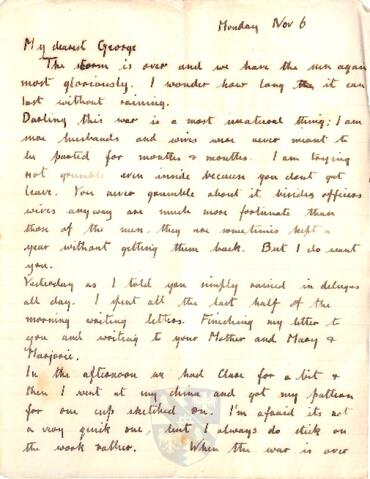 Monday Nov 6
My dearest George
The storm is over and we have the sun again
most gloriously. I wonder how long it can
last without raining.
Darling this war is a most unnatural thing; I am
sure husbands and wives were never meant to
be parted for months & months. I am trying
not grumble even inside because you dont get
leave. You never grumble about it besides officers
wives anyway are much more fortunate than
those of the men, they are sometimes kept a
year without getting them back. But I do want
you.
Yesterday as I told you simply rained in deluges
all day. I spent all the last half of the
morning writing letters. Finishing my letter to
you and writing to your Mother and Mary &
Marjorie.
In the afternoon we had Clare for a bit &
then I went at my china and got my pattern
for one cup sketched on. I'm afraid its not
a very quick one but I always do stick on
the work rather. When the war is over